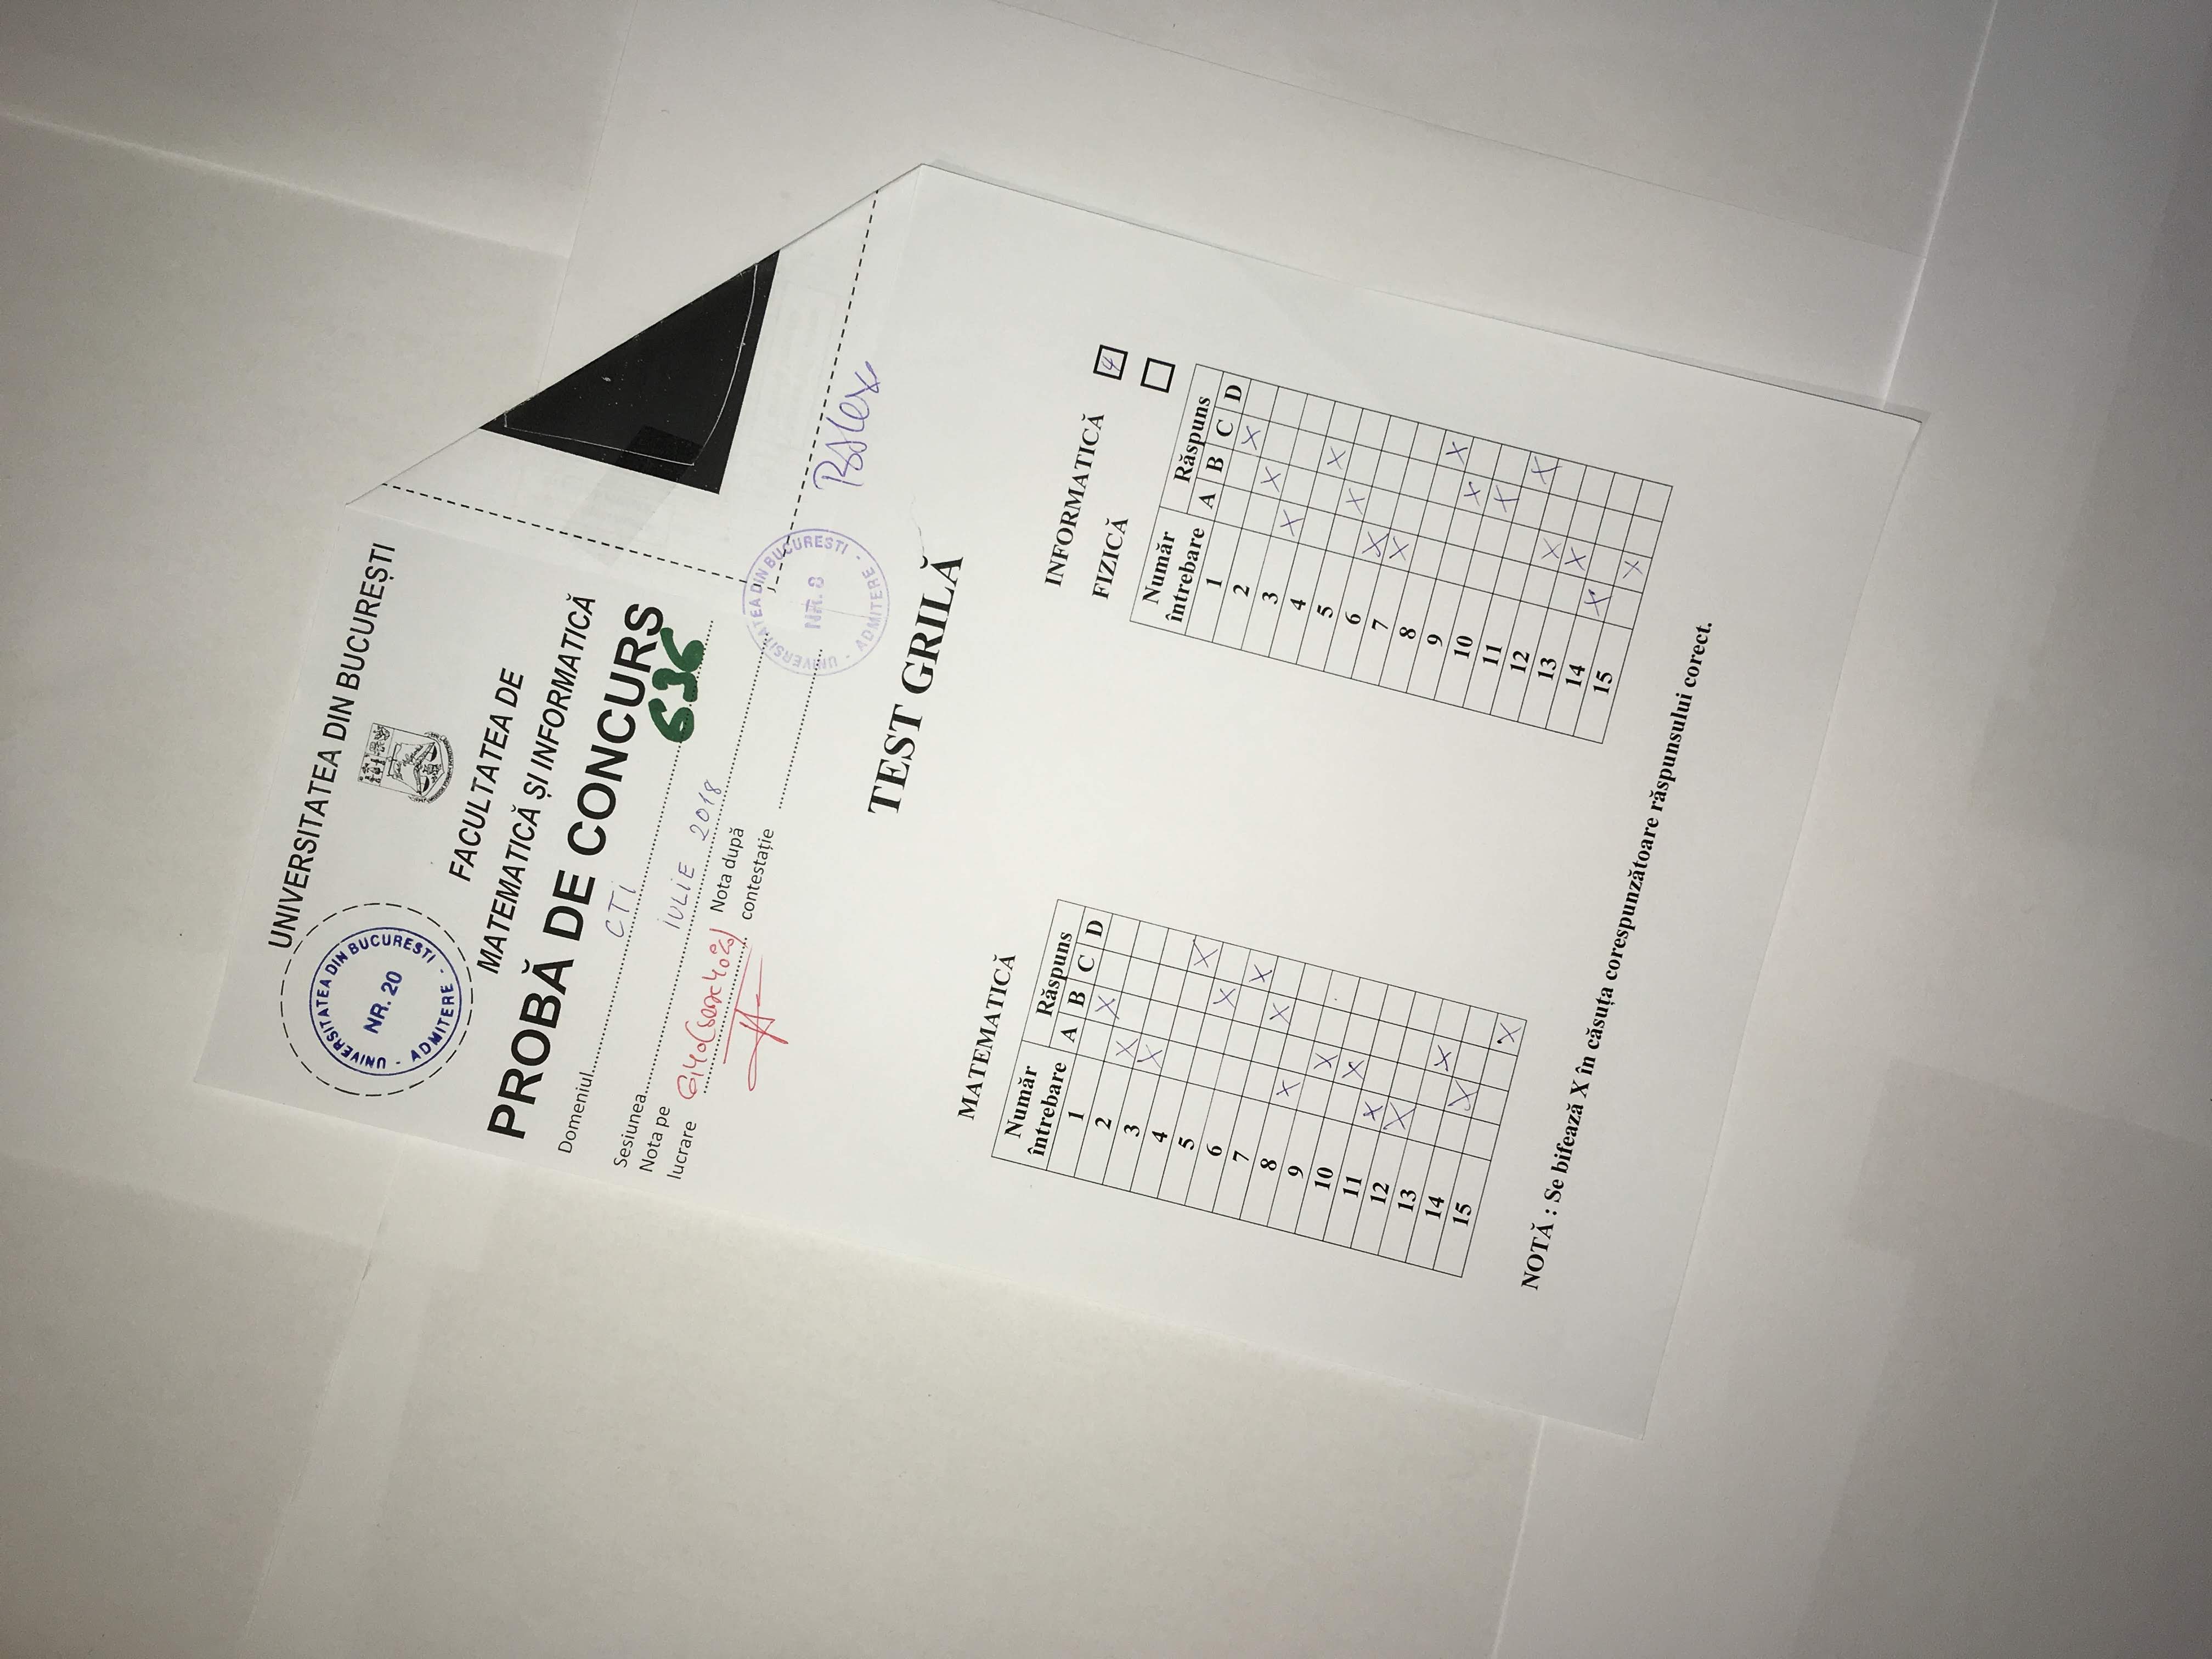 UNIVERSITATEA DIN BUCUREȘTI
UNIVERSITATEA DIN BUCUREȘTI - ADMITERE -
NR. 20
FACULTATEA DE
MATEMATICĂ ȘI INFORMATICĂ
PROBĂ DE CONCURS
Domeniul CTi
636
Sesiunea iULiE 2018
Nota pe
lucrare 6,40 (șase 40%)
Nota după
contestație
UNIVERSITATEA DIN BUCURESTI - ADMITERE -
NR. 8
TEST GRILĂ
MATEMATICĂ
Număr
întrebare
Răspuns
A B C D
1 X
2 X
3 X
4 X
5 X
6 X
7 X
8 X
9 X
10 X
11 X
12 X
13 X
14 X
15 X
INFORMATICĂ
FIZICĂ
Număr
întrebare
Răspuns
A B C D
1 X
2 X
3 X
4 X
5 X
6 X
7 X
8 X
9 X
10 X
11 X
12 X
13 X
14 X
15 X
NOTĂ : Se bifează X în căsuța corespunzătoare răspunsului corect.